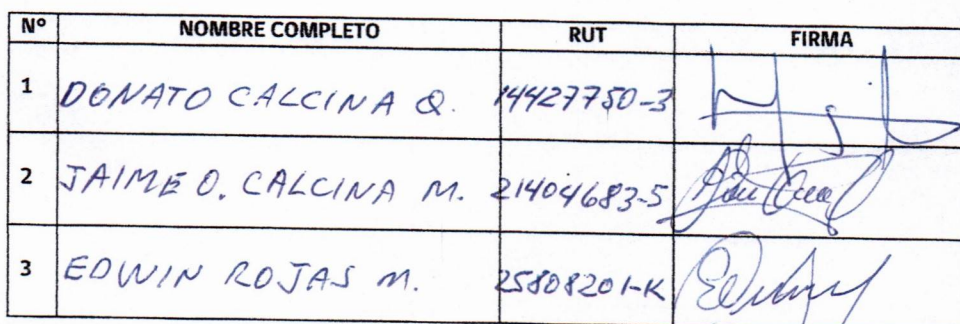 N° NOMBRE COMPLETO RUT FIRMA
1 DONATO CALCINA Q. 14427750-3
2 JAIME O. CALCINA M. 21404683-5
3 EDWIN ROJAS M. 25808201-K